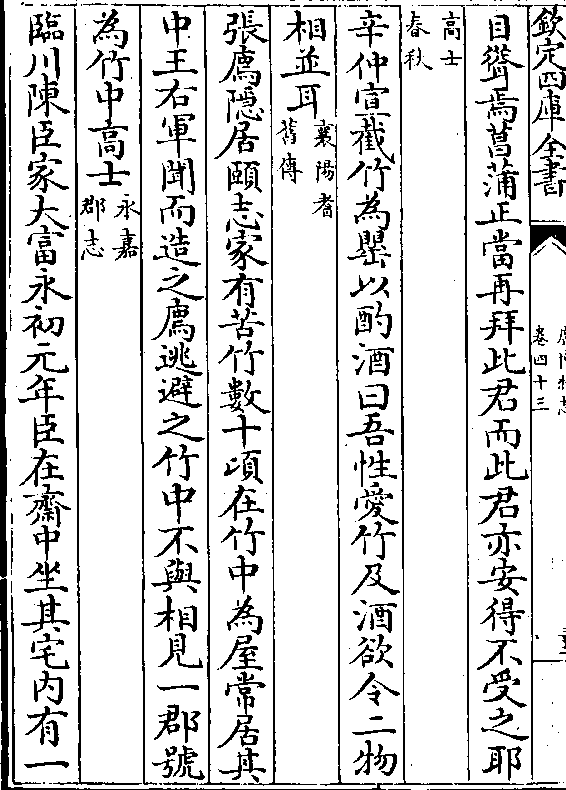 欽定四庫全書
卷四十三
目聳焉菖蒲正當再拜此君而此君亦安得不受之耶
高士
春秋
辛仲宣截竹為罌以酌酒曰吾性愛竹及酒欲令二物
相並耳
襄陽耆
舊傳
張廌隱居頤志家有苦竹數十頃在竹中為屋常居其
中王右軍聞而造之廌逃避之竹中不與相見一郡號
為竹中高士
永嘉
郡志
臨川陳臣家大富永初元年臣在齋中坐其宅内有一